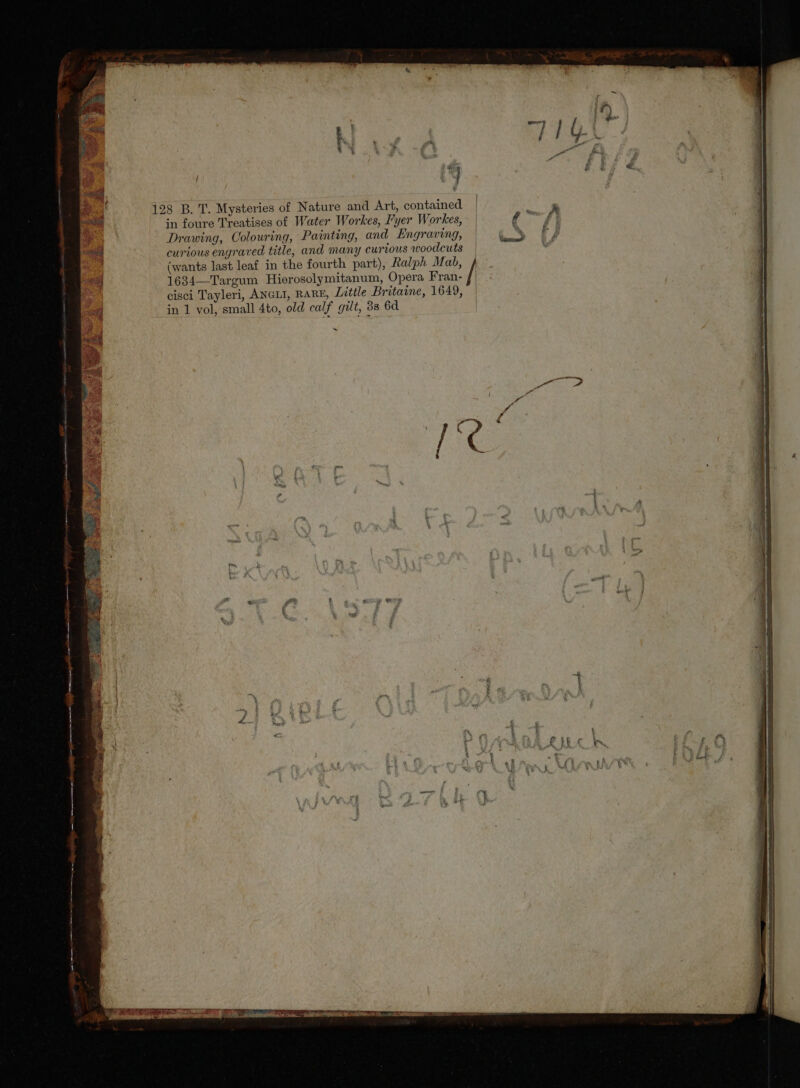 714(2)
A/2
19
128 B. T. Mysteries of Nature and Art, contained
in foure Treatises of Water Workes, Fyer Workes,
Drawing, Colouring, Painting, and Engraving,
curious engraved title, and many curious woodcuts
(wants last leaf in the fourth part), Ralph Mab,
1634—Targum Hierosolymitanum, Opera Fran-
cisci Tayleri, ANGLI, RARE, Little Britaine, 1649,
in 1 vol, small 4to, old calf gilt, 3s 6d
1) BATE, J.
Sigs Q2 and Ff 2-3 wanting
Extra leaf between pp. 14 and 15
(=T4)
S.T.C. 1577
2) BIBLE Old Testament,
Pentateuch
Targum Hierosolymitanum. 1649.
Wing B2764a